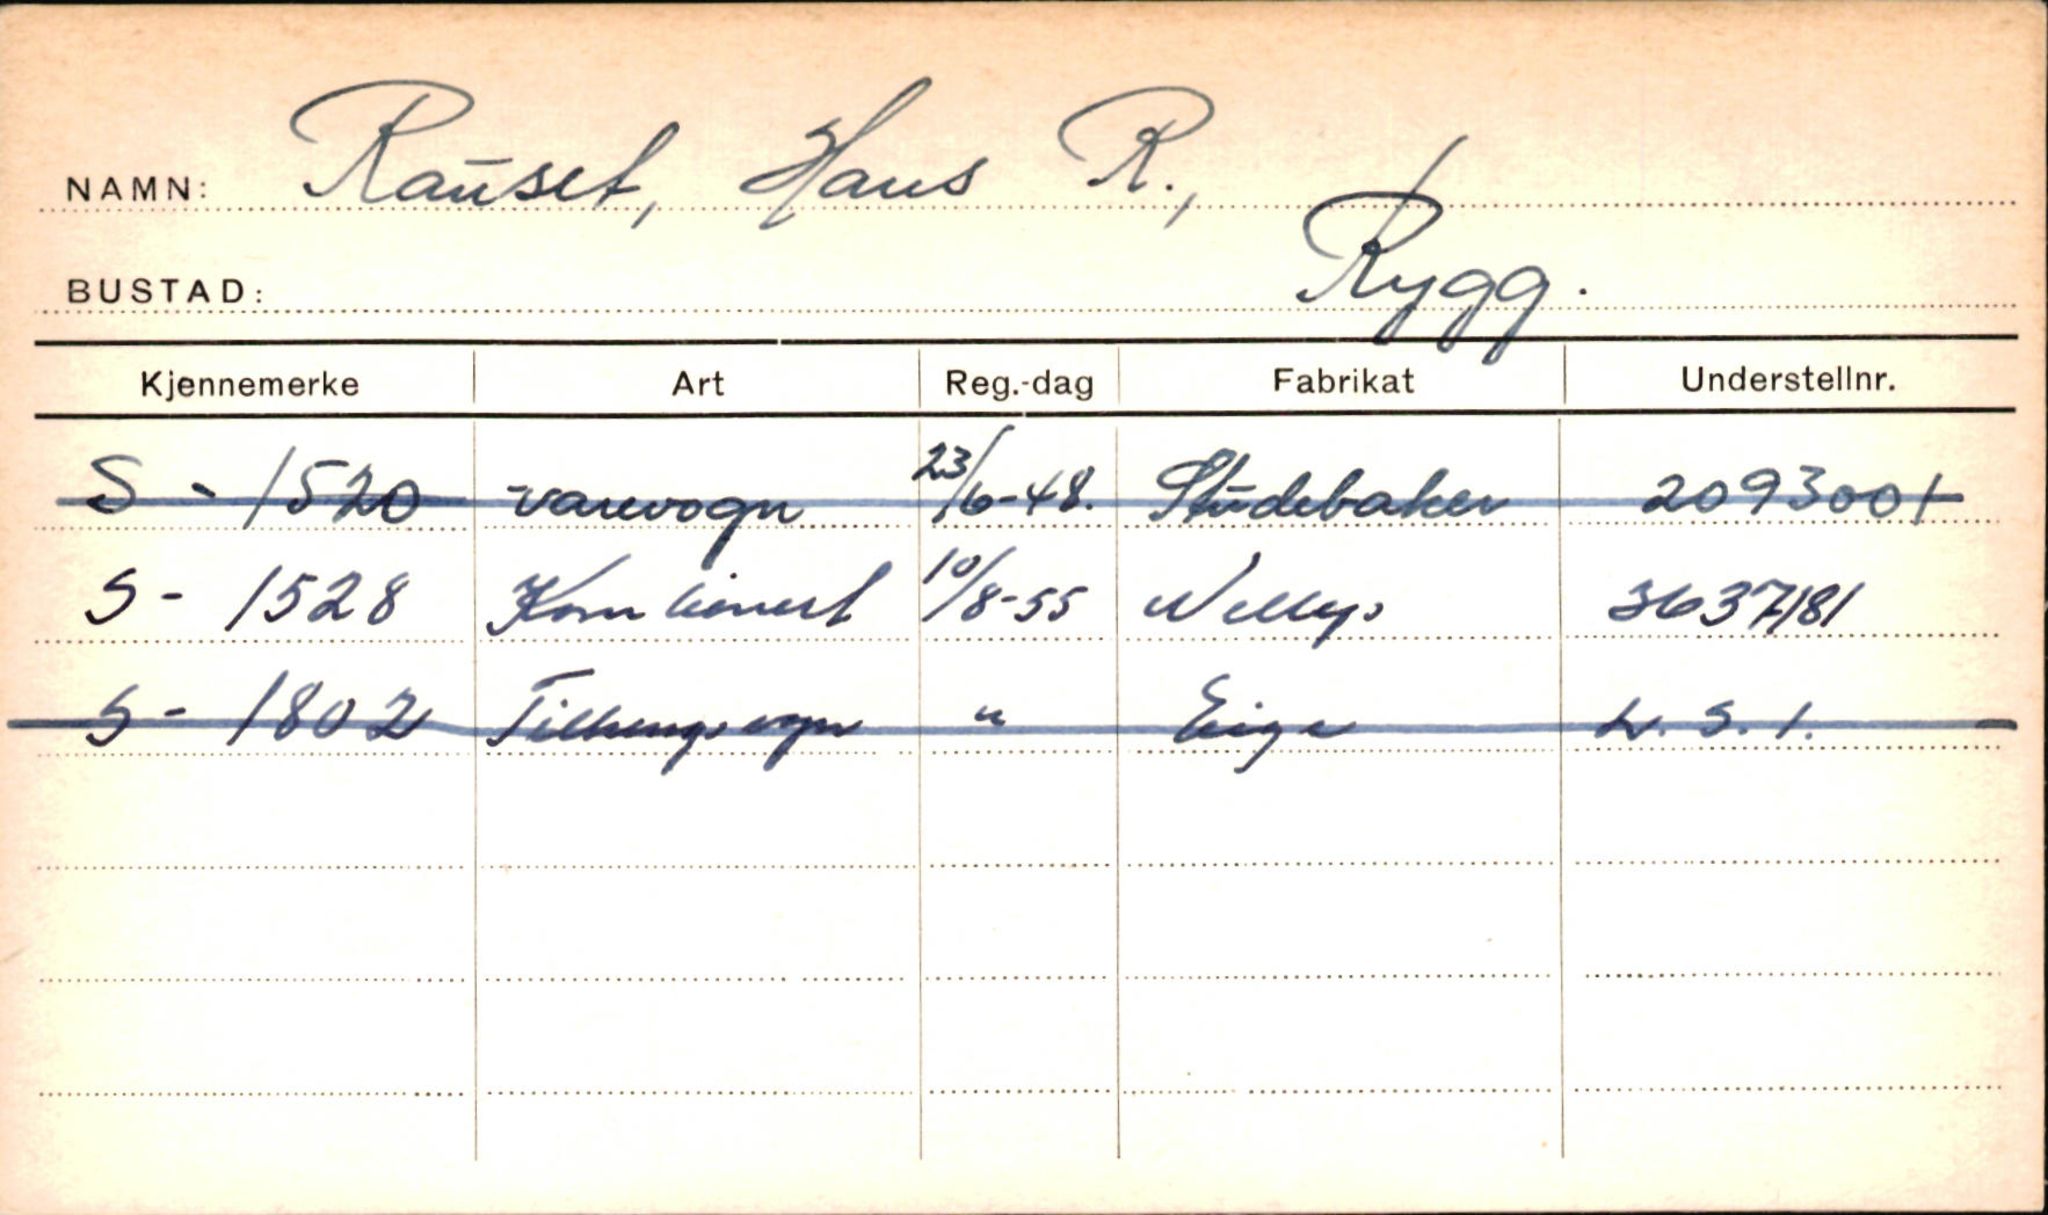 NAMN: Rauset, Hans R.,
BUSTAD: Rygg.
Kjennemerke Art Reg.-dag Fabrikat Understellnr.
S - 1520 varevogn 23/6-48. Studebaker 2093001
S - 1528 Kombinert 10/8-55 Willys 3637181
S - 1802 Tilhengsvogn " Eige L. S. 1.